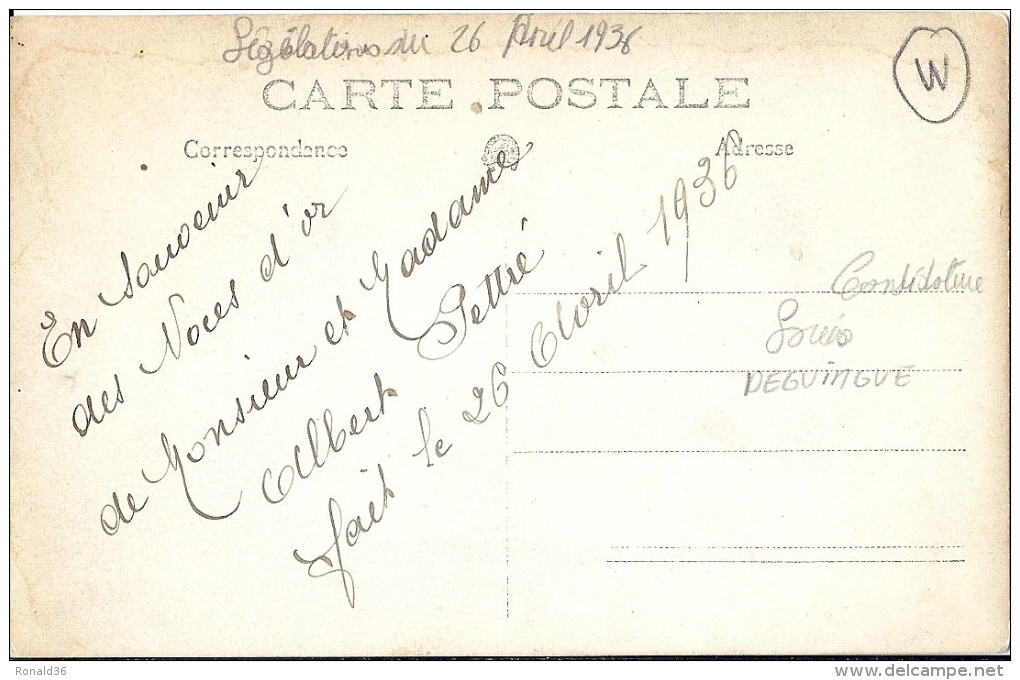 Législatives du 26 Avril 1936
W
CARTE POSTALE
Correspondance
Adresse
En Souvenir
des Noces d'or
de Monsieur et Madame
Albert Pettré
fait le 26 Avril 1936
Candidature
Louis
DEGUINGUE
Ronald36
www.delcampe.net